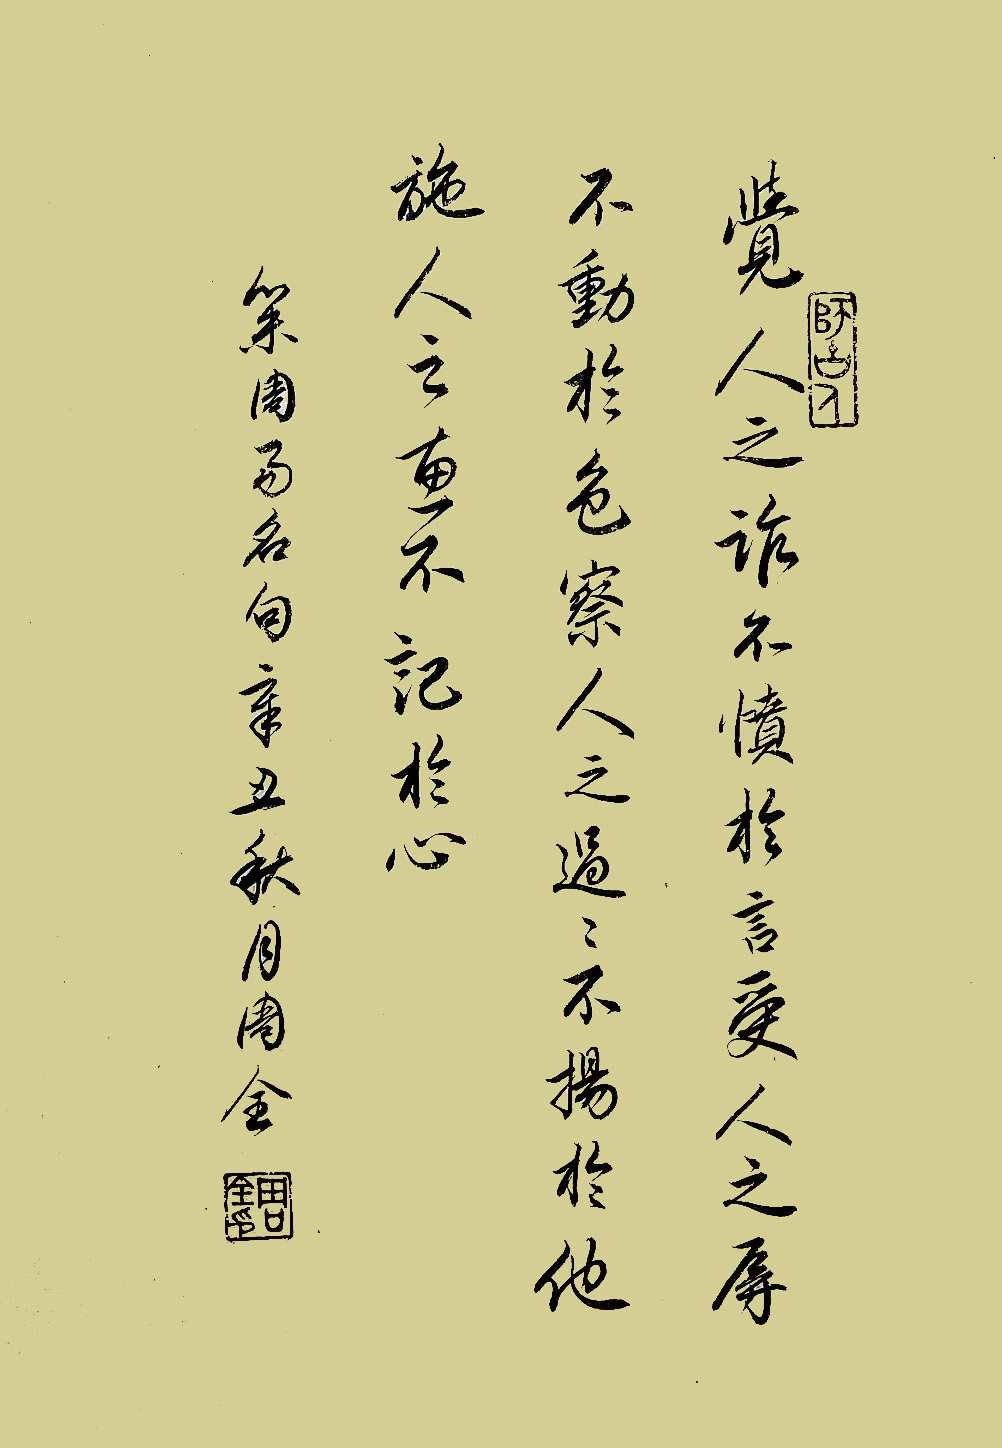 覺人之詐不憤於言受人之辱
不動於色察人之過〻不揚於他
施人之惠不記於心
周易名句辛丑秋月周全
師古人
周全印